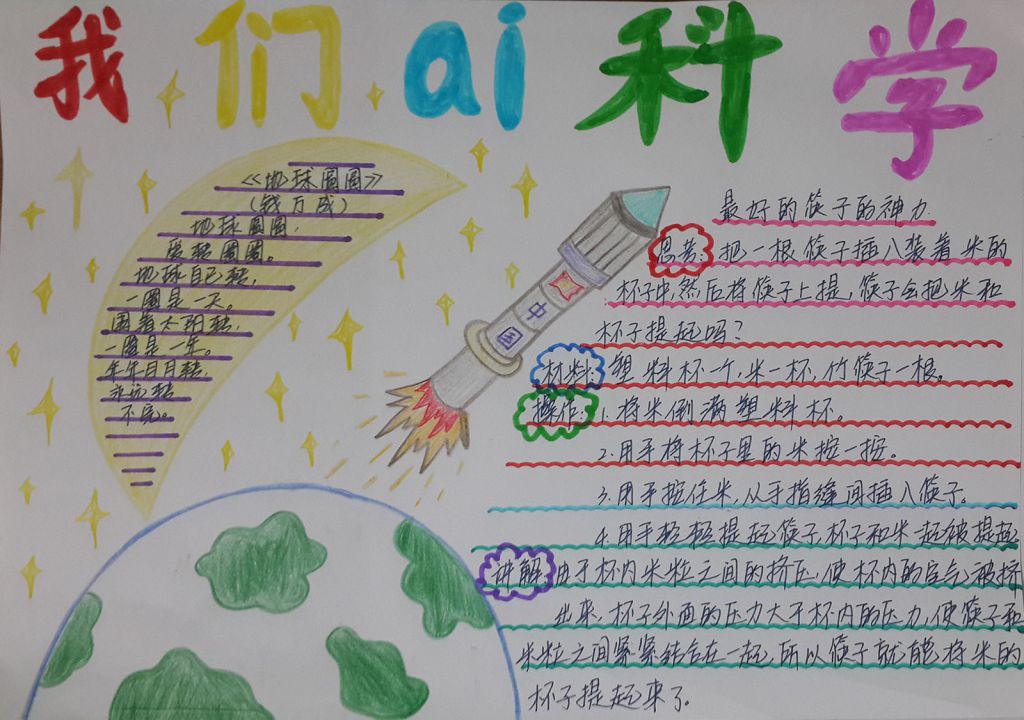 我们ai科学
《地球圆圆》
(钱万成)
地球圆圆,
转圈圈。
地球自己转,
一圈是一天。
围着太阳转,
一圈是一年。
年年月月转,
永远转
不完。
中国
最好的筷子的神力
思考:把一根筷子插入装着米的
杯子中,然后将筷子上提,筷子会把米和
杯子提起吗?
材料:塑料杯一个,米一杯,竹筷子一根。
操作:1.将米倒满塑料杯。
2.用手将杯子里的米按一按。
3.用手按住米,从手指缝间插入筷子。
4.用手轻轻提起筷子,杯子和米一起被提起
讲解:由于杯内米粒之间的挤压,使杯内的空气被挤
出来,杯子外面的压力大于杯内的压力,使筷子和
米粒之间紧紧结合在一起,所以筷子就能将米的
杯子提起来了。